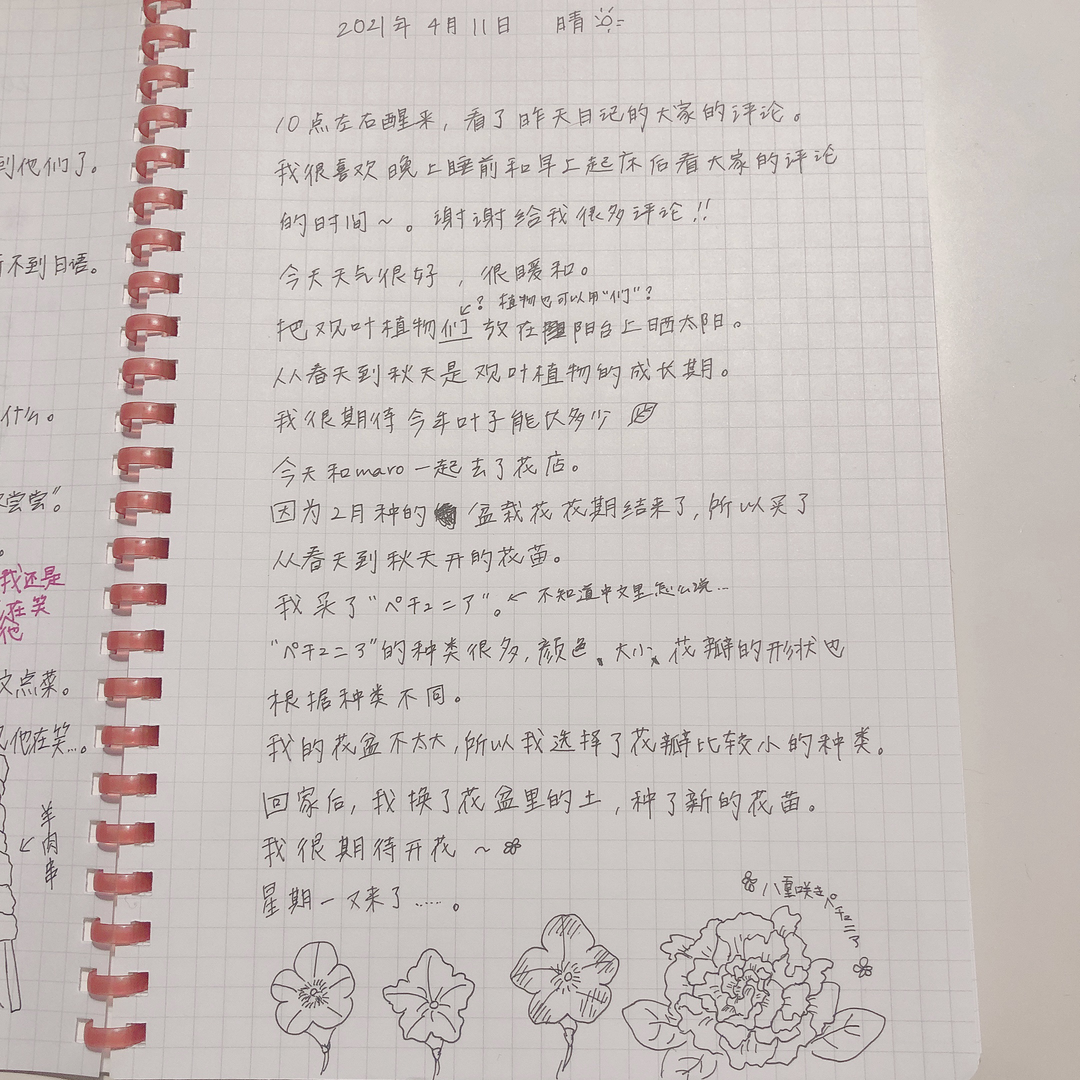 到他们了。
不到日语。
什么。
尝尝”。
我还是
在笑
他
点菜。
他在笑…。
羊肉串
2021年 4月 11日 晴
10点左右醒来，看了昨天日记的大家的评论。
我很喜欢晚上睡前和早上起床后看大家的评论
的时间~。谢谢给我很多评论!!
今天天气很好，很暖和。
? 植物也可以用“们”?
把观叶植物们放在阳台上晒太阳。
从春天到秋天是观叶植物的成长期。
我很期待今年叶子能大多少
今天和maro一起去了花店。
因为2月种的盆栽花花期结来了，所以买了
从春天到秋天开的花苗。
我买了“ペチュニア”。← 不知道中文里怎么说…
“ペチュニア”的种类很多，颜色、大小、花瓣的形状也
根据种类不同。
我的花盆不太大，所以我选择了花瓣比较小的种类。
回家后，我换了花盆里的土，种了新的花苗。
我很期待开花~
星期一又来了……。
八重咲きペチュニア